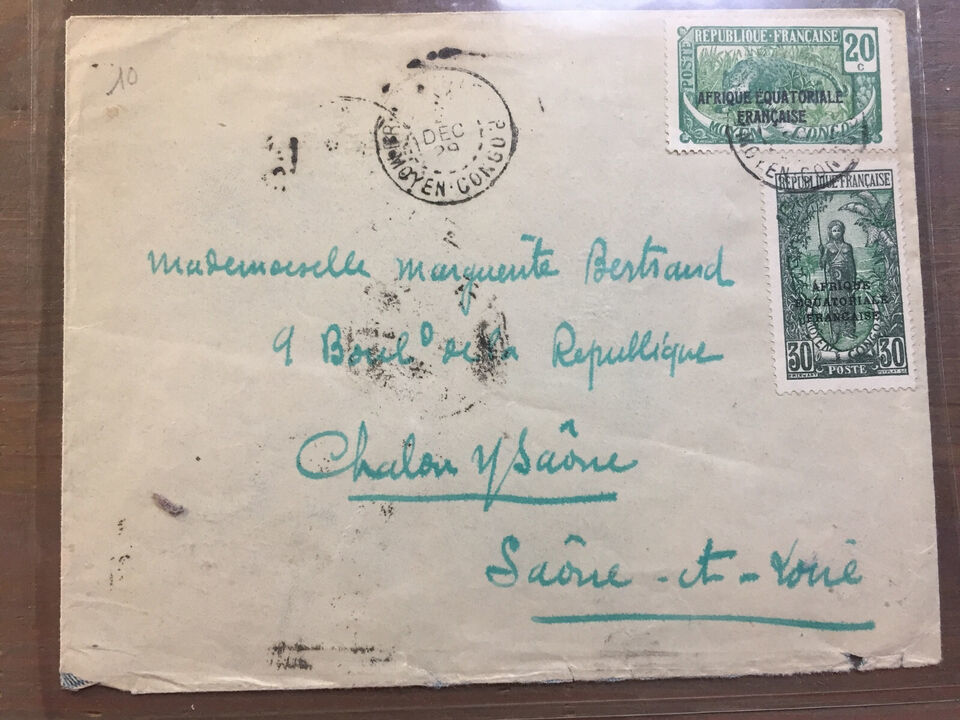 10
RÉPUBLIQUE · FRANÇAISE
POSTE
20
c
AFRIQUE ÉQUATORIALE
FRANÇAISE
CONGO
1 DEC
29
MOYEN-CONGO
MOYEN-CONGO
RÉPUBLIQUE · FRANÇAISE
AFRIQUE
ÉQUATORIALE
FRANÇAISE
MOYEN CONGO
30 POSTE 30
Mademoiselle Marguerite Bertrand
9 Boulᵈ de la Republique
Chalon s/ Saône
Saône-et-Loire